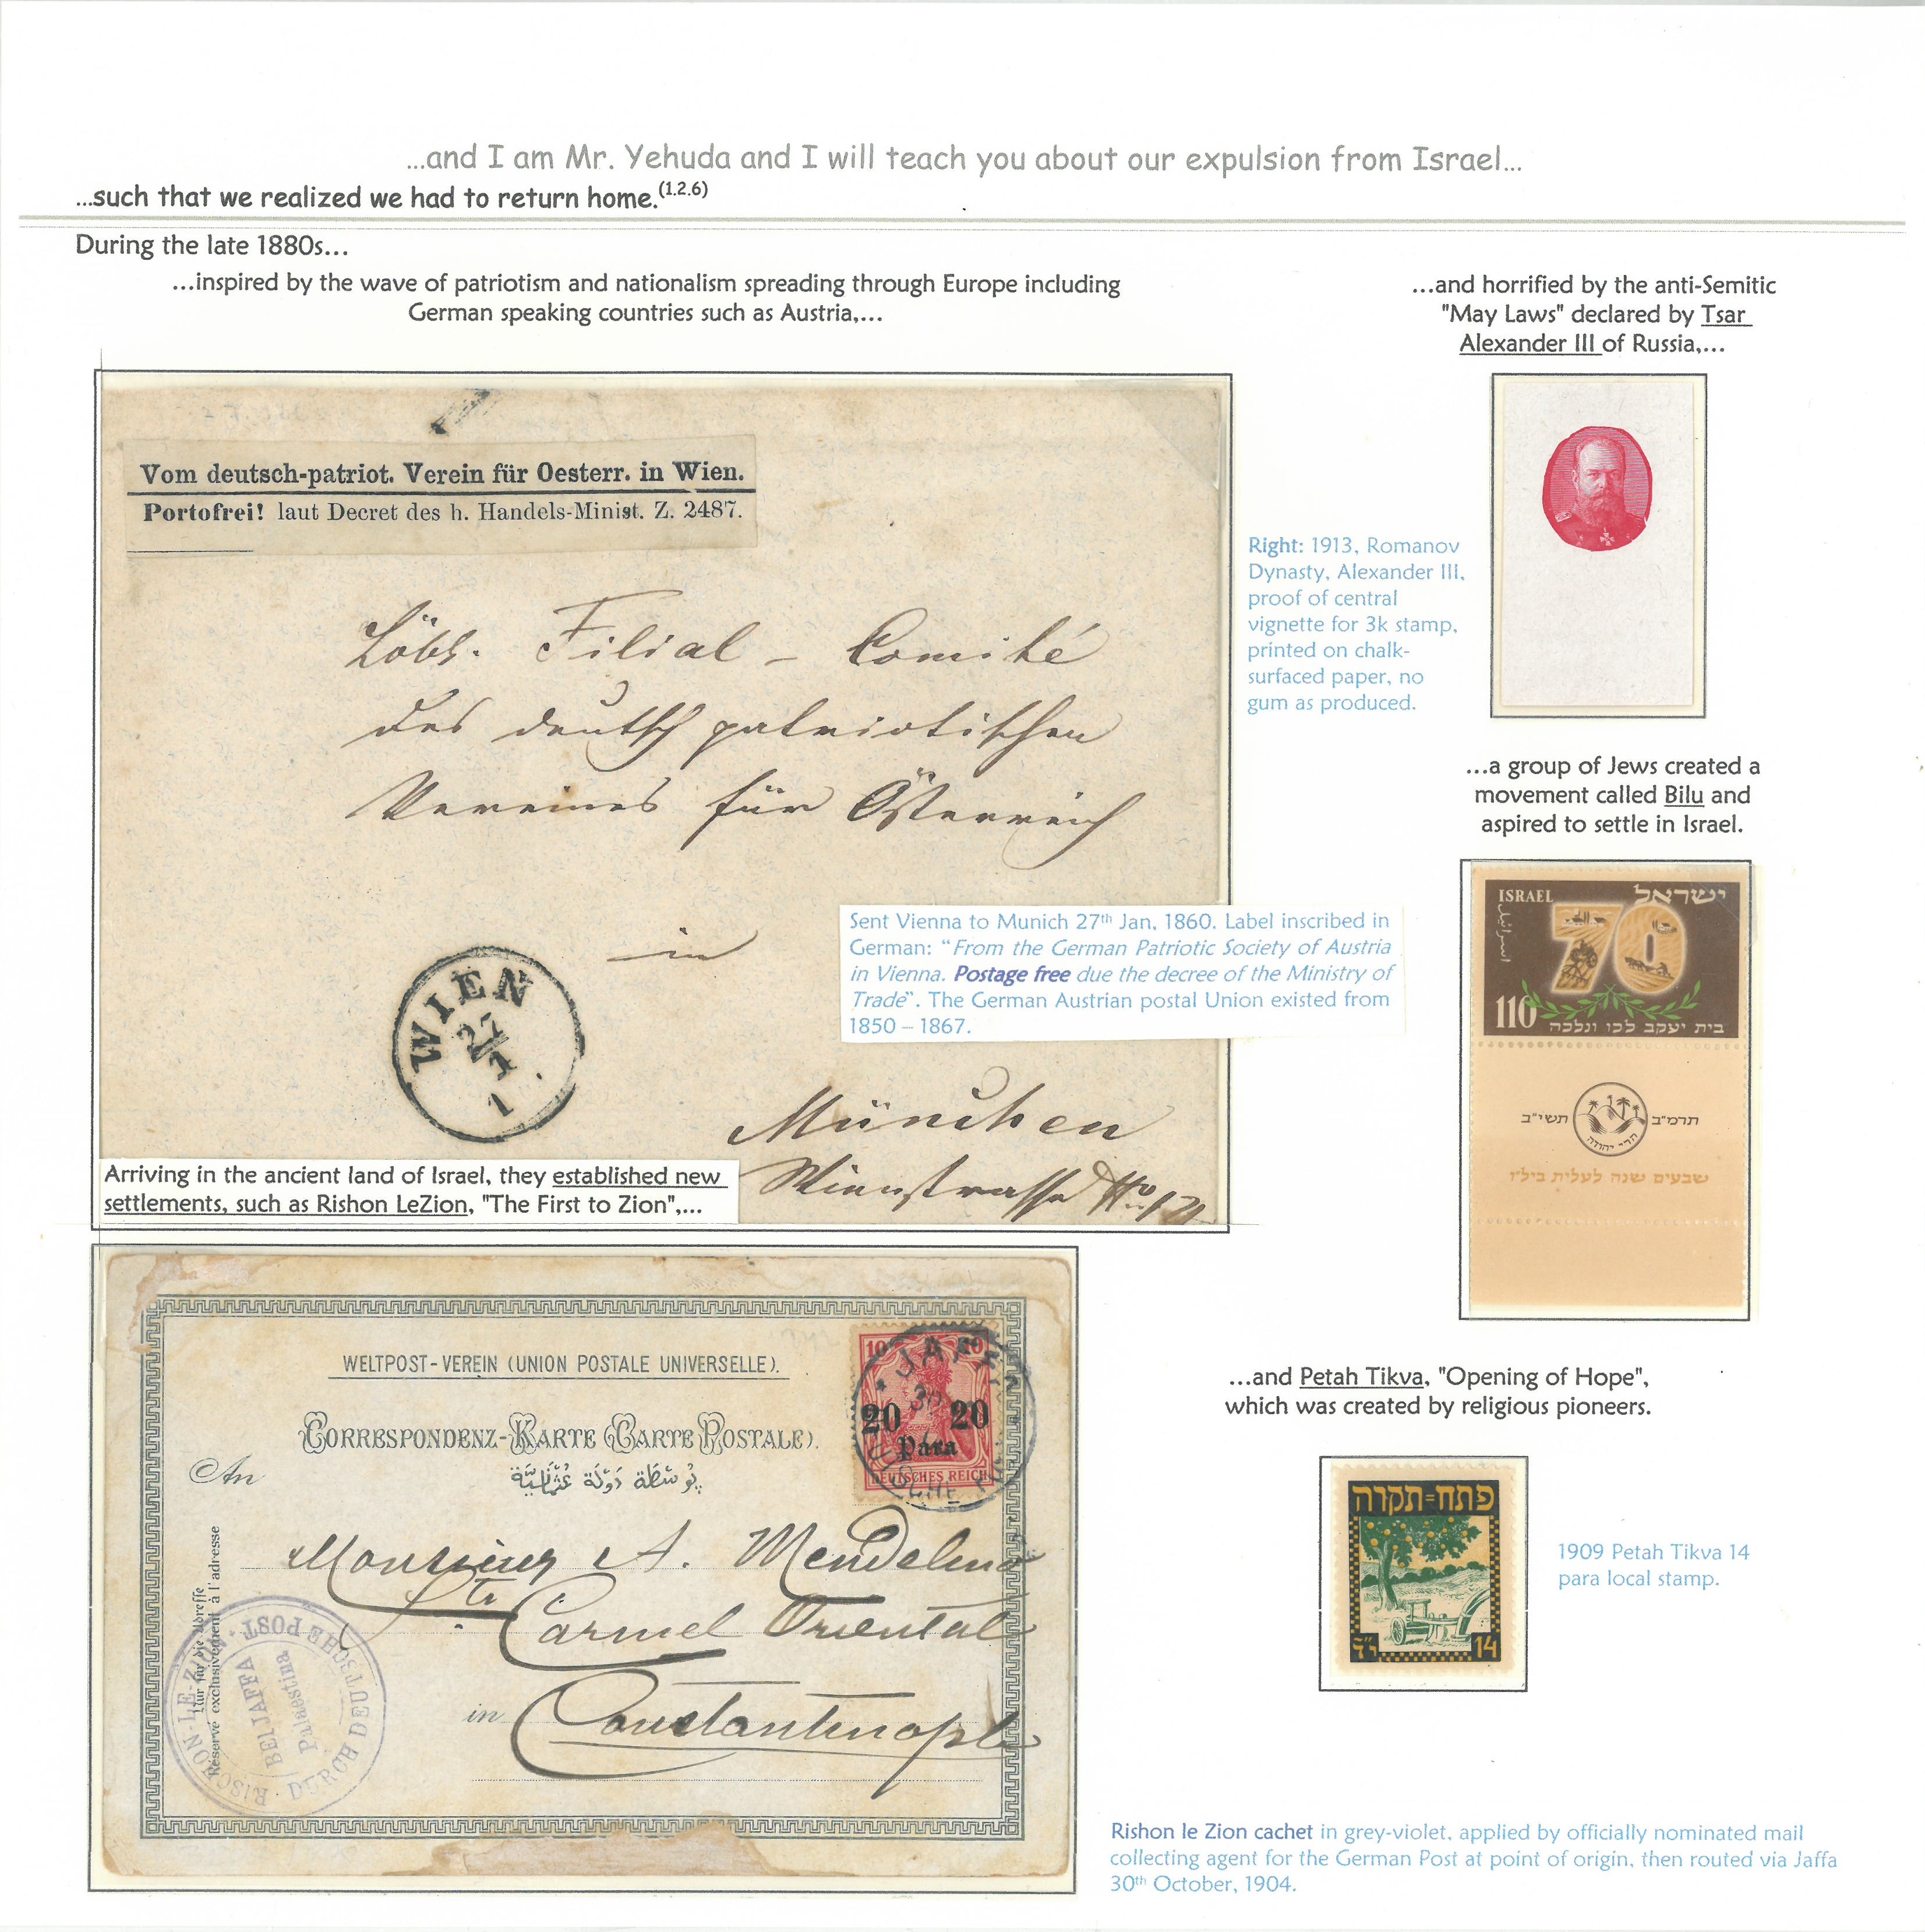 ...and I am Mr. Yehuda and I will teach you about our expulsion from Israel...
...such that we realized we had to return home.(1.2.6)
During the late 1880s...
...inspired by the wave of patriotism and nationalism spreading through Europe including
German speaking countries such as Austria,...
...and horrified by the anti-Semitic
"May Laws" declared by Tsar
Alexander III of Russia,...
Vom deutsch-patriot. Verein für Oesterr. in Wien.
Portofrei! laut Decret des h. Handels-Minist. Z. 2487.
Löbl. Filial - Comité
des deutsch patriotischen
Vereines für Österreich
in
München
WIEN
27
1
1
Right: 1913, Romanov
Dynasty, Alexander III,
proof of central
vignette for 3k stamp,
printed on chalk-
surfaced paper, no
gum as produced.
...a group of Jews created a
movement called Bilu and
aspired to settle in Israel.
ISRAEL ישראל
اسرائيل
70
110
בית יעקב לכו ונלכה
תרמ"ב תשי"ב
הרי יהודה
שבעים שנה לעלית ביל"ו
Sent Vienna to Munich 27th Jan, 1860. Label inscribed in
German: "From the German Patriotic Society of Austria
in Vienna. Postage free due the decree of the Ministry of
Trade". The German Austrian postal Union existed from
1850 – 1867.
Arriving in the ancient land of Israel, they established new
settlements, such as Rishon LeZion, "The First to Zion",...
WELTPOST-VEREIN (UNION POSTALE UNIVERSELLE).
CORRESPONDENZ-KARTE (CARTE POSTALE).
بوسطه دولة عثمانية
An
10 10
20 20
Para
DEUTSCHES REICH
JAFFA
30
DEUTSCHE POST
Monsieur A.
Carmel Oriental
in Constantinople
Nur für die Adresse
Réservé exclusivement à l'adresse
RISHON-LE-ZION · DURCH DEUTSCHE POST ·
BEI JAFFA
Palaestina
...and Petah Tikva, "Opening of Hope",
which was created by religious pioneers.
פתח=תקוה
י"ד 14
1909 Petah Tikva 14
para local stamp.
Rishon le Zion cachet in grey-violet, applied by officially nominated mail
collecting agent for the German Post at point of origin, then routed via Jaffa
30th October, 1904.